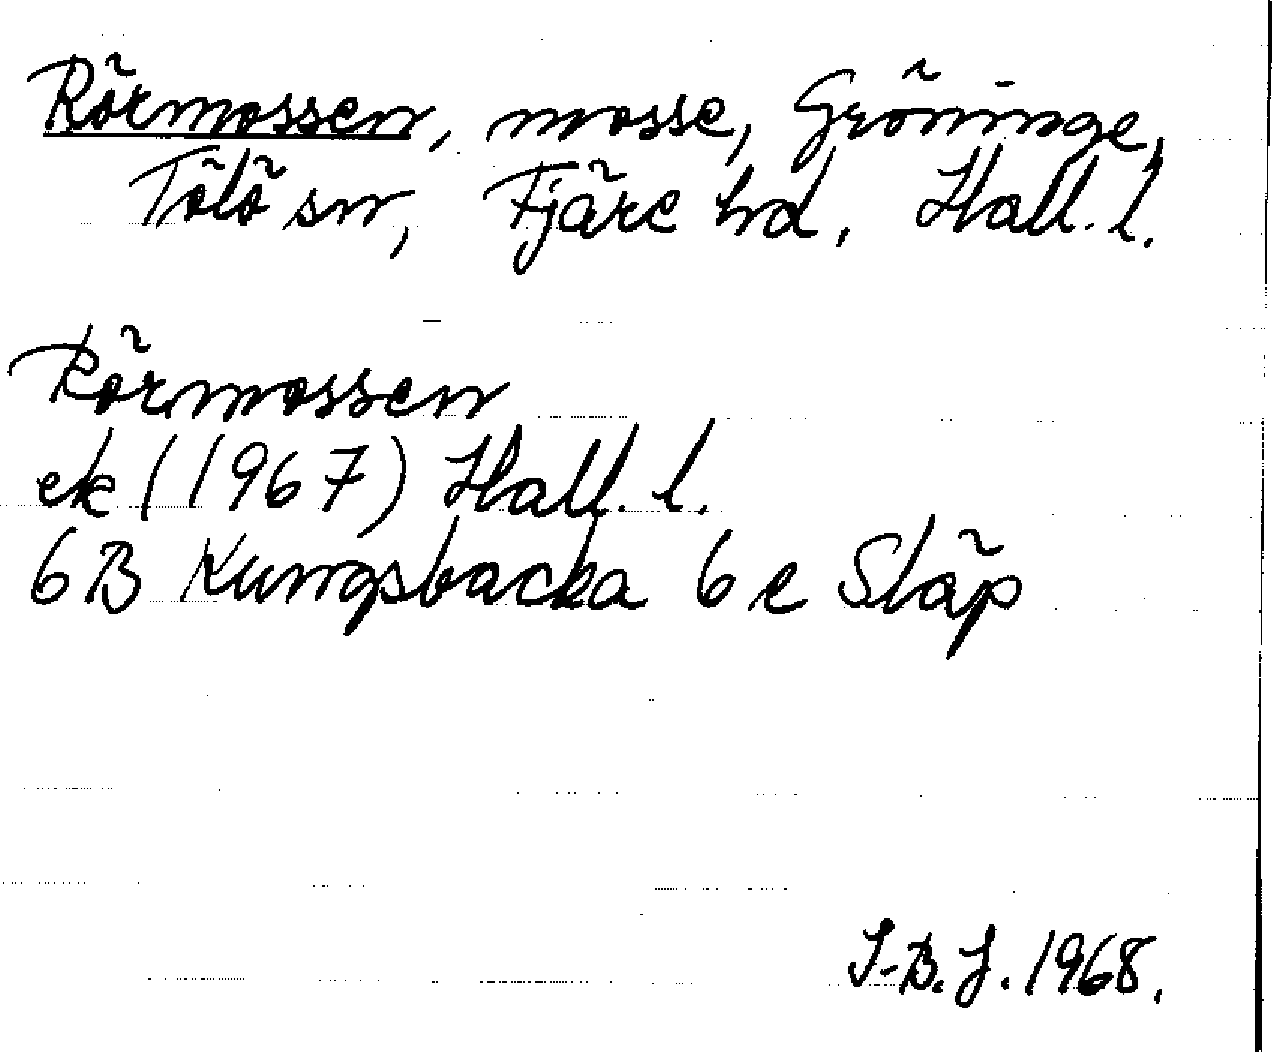 Rörmossen, mosse, Gröninge,
Tölö sn, Fjäre hd, Hall. l.
Rörmossen
ek (1967) Hall. l.
6B Kungsbacka 6 e Släp
I-B. J. 1968.